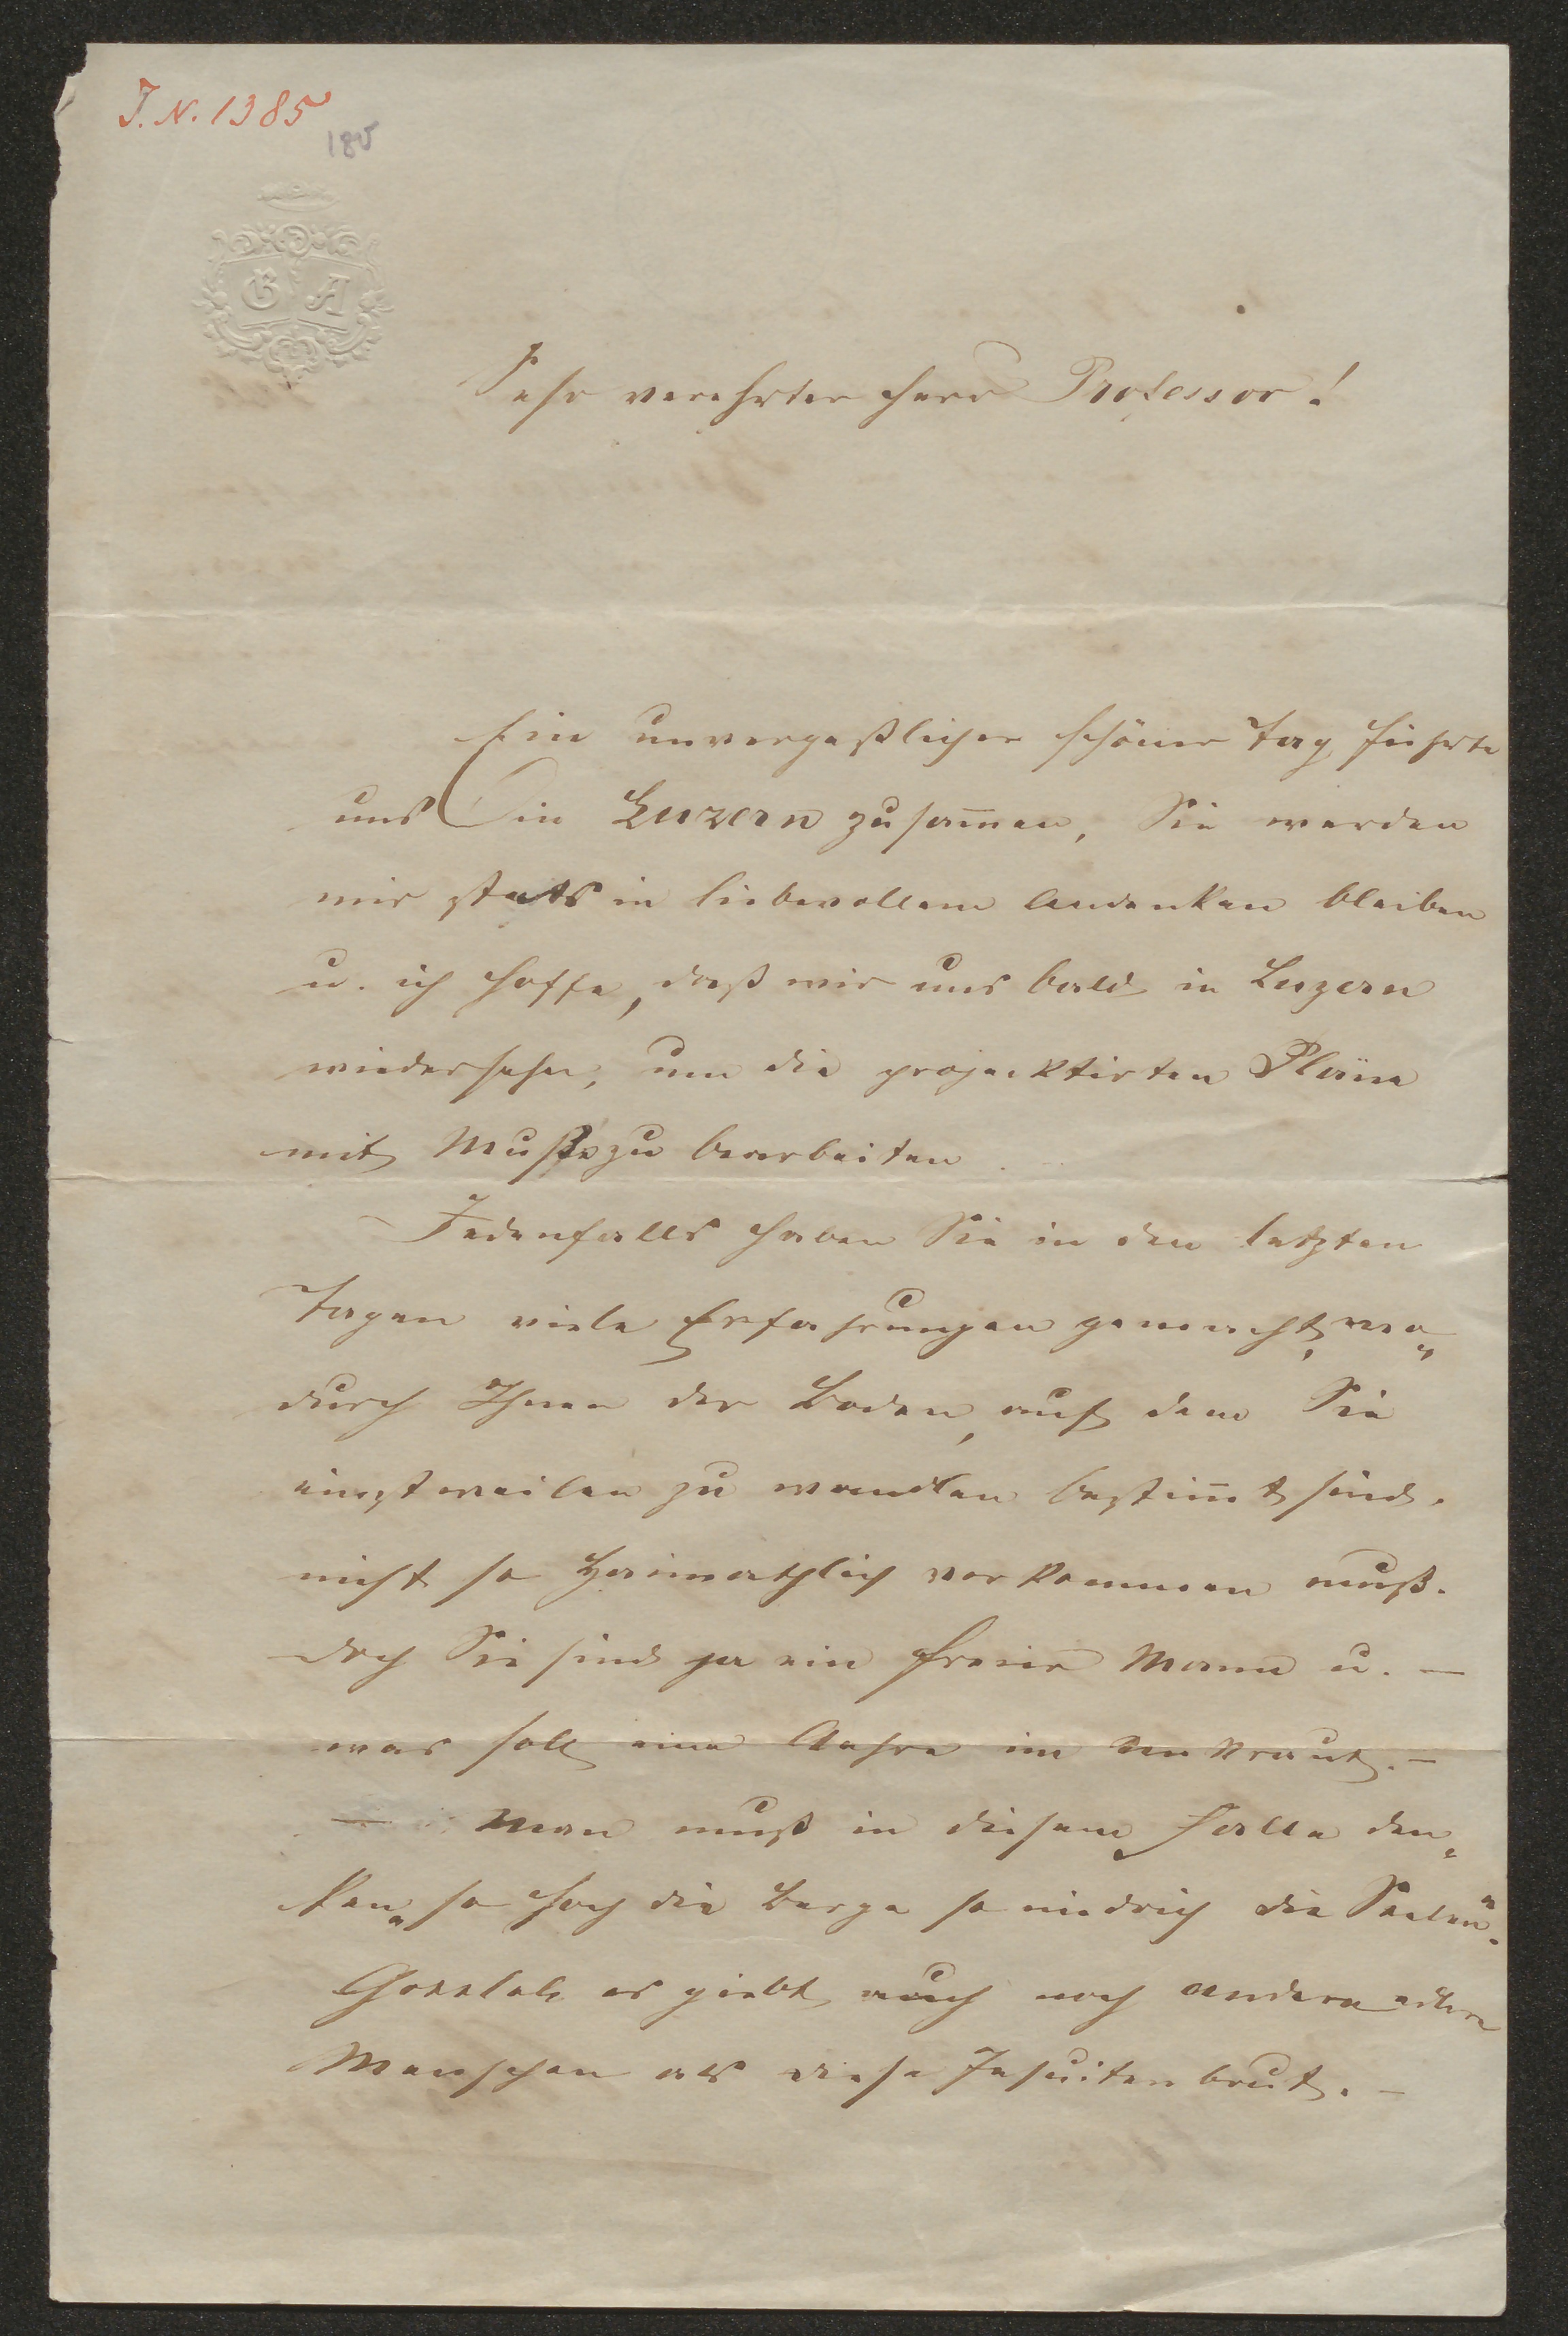 J. N. 1385
185
G A
Sehr verehrter Herr Professor!
Ein unvergeßlicher schöner Tag führte
uns in Luzern zusam̄en, Sie werden
mir stets in liebevollem Andenken bleiben
u. ich hoffe, daß wir uns bald in Luzern
wiedersehn, um die projecktirten Pläne
mit Muße zu bearbeiten.
– Jedenfalls haben Sie in den letzten
Tagen viele Erfahrungen gemacht, wo„
durch Ihnen der Boden, auf dem Sie
einstweilen zu wandlen bestim̄t sind.
nicht so Heimathlich vorkommen muß.
doch Sie sind ja ein freier Mann u. –
was soll eine Aehre im Unkraut. –
– Man muß in diesem Falle den„
ken „so hoch die Berge so niedrich die Seelen“.
Gottlob es giebt auch noch andere edlere
Menschen als diese Jesuitenbrut. –